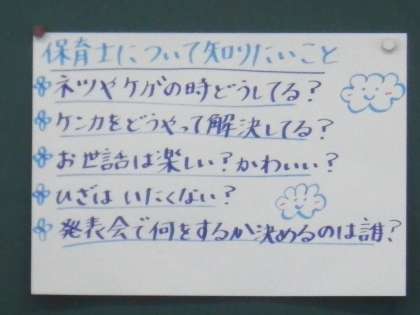 保育士について知りたいこと
ネツやケガの時どうしてる?
ケンカをどうやって解決してる?
お世話は楽しい?かわいい?
ひざは いたくない?
発表会で何をするか決めるのは誰?